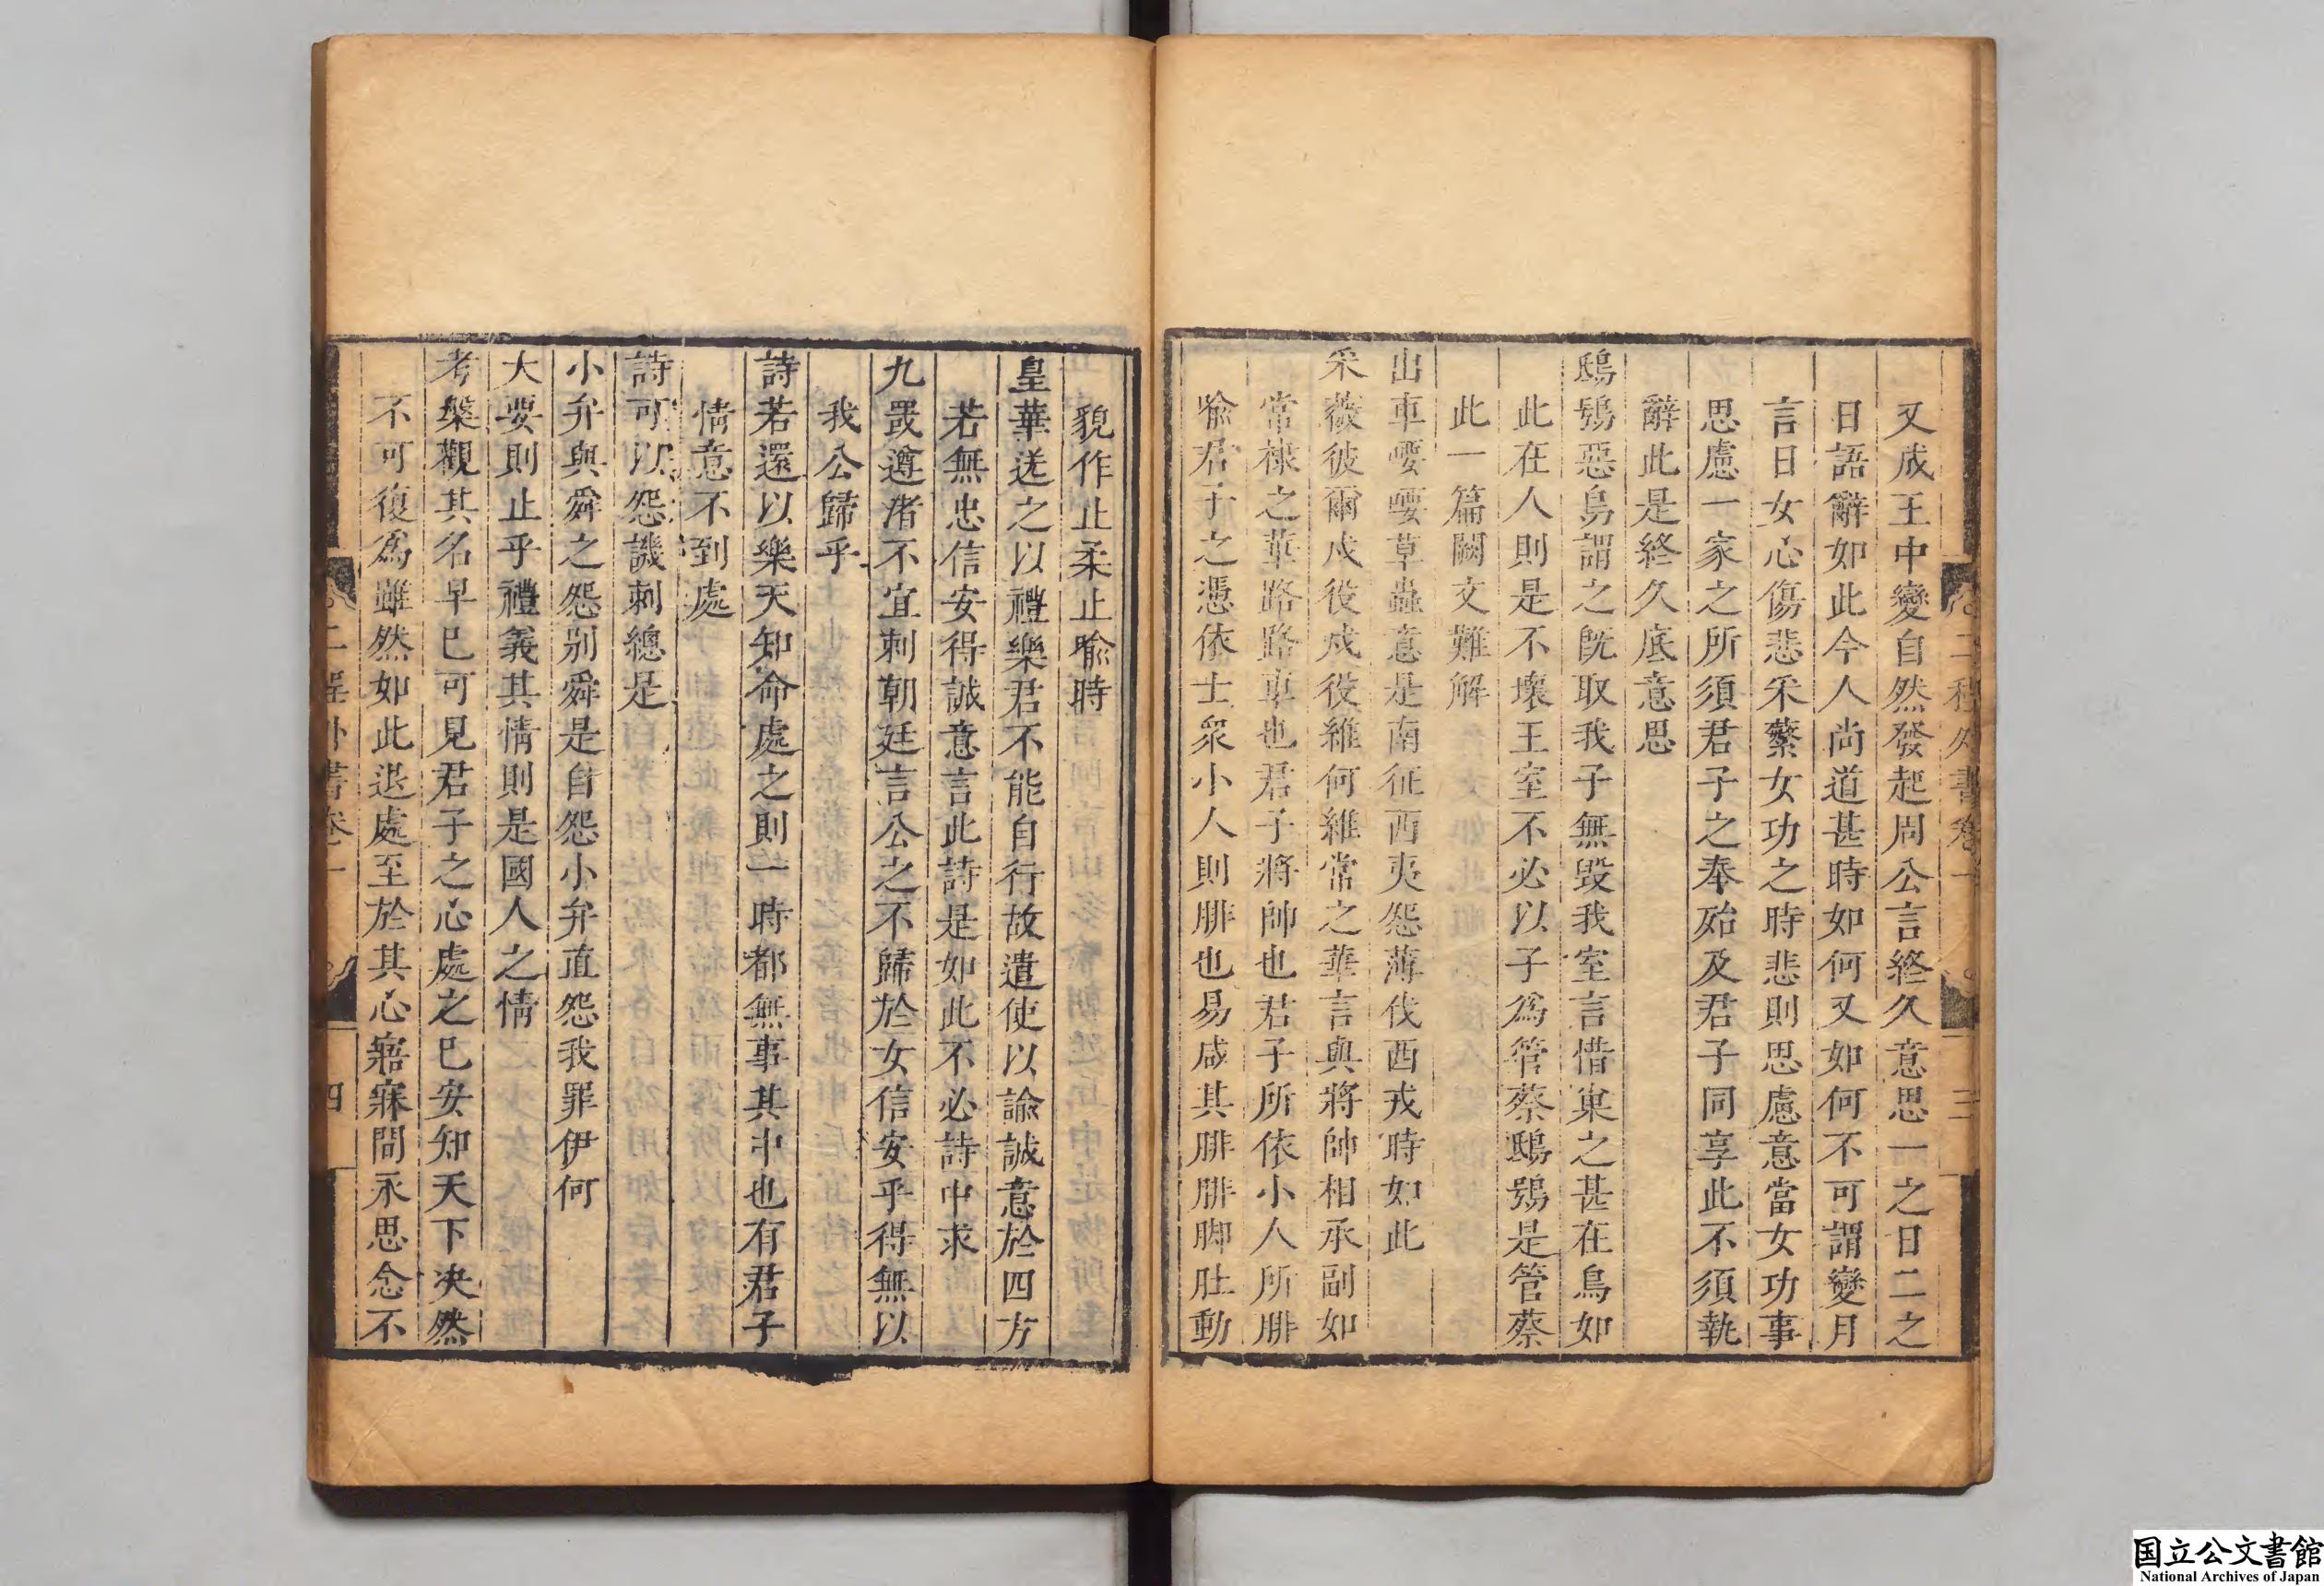 二程外書卷一
三
又成王中變自然發起周公言終久意思一之日二之
日語辭如此今人尚道甚時如何又如何不可謂變月
言日女心傷悲采蘩女功之時悲則思慮意當女功事
思慮一家之所須君子之奉殆及君子同享此不須執
辭此是終久底意思
鴟鴞惡鳥謂之旣取我子無毀我室言惜巢之甚在鳥如
此在人則是不壞王室不必以子為管蔡鴟鴞是管蔡
此一篇闕文難解
出車喓喓草蟲意是南征西夷怨薄伐西戎時如此
采薇彼爾戍役戍役維何維常之華言與將帥相承副如
常棣之華路路車也君子將帥也君子所依小人所腓
喩君子之憑依士衆小人則腓也易咸其腓腓脚肚動
貌作止柔止喩時
皇華送之以禮樂君不能自行故遣使以諭誠意於四方
若無忠信安得誠意言此詩是如此不必詩中求
九罭遵渚不宜刺朝廷言公之不歸於女信安乎得無以
我公歸乎
詩若還以樂天知命處之則一時都無事其中也有君子
情意不到處
詩可以怨譏刺總是
小弁與舜之怨別舜是自怨小弁直怨我罪伊何
大要則止乎禮義其情則是國人之情
考槃觀其名早已可見君子之心處之已安知天下决然
不可復爲雖然如此退處至於其心寤寐間永思念不
二程外書卷一
四
国立公文書館
National Archives of Japan